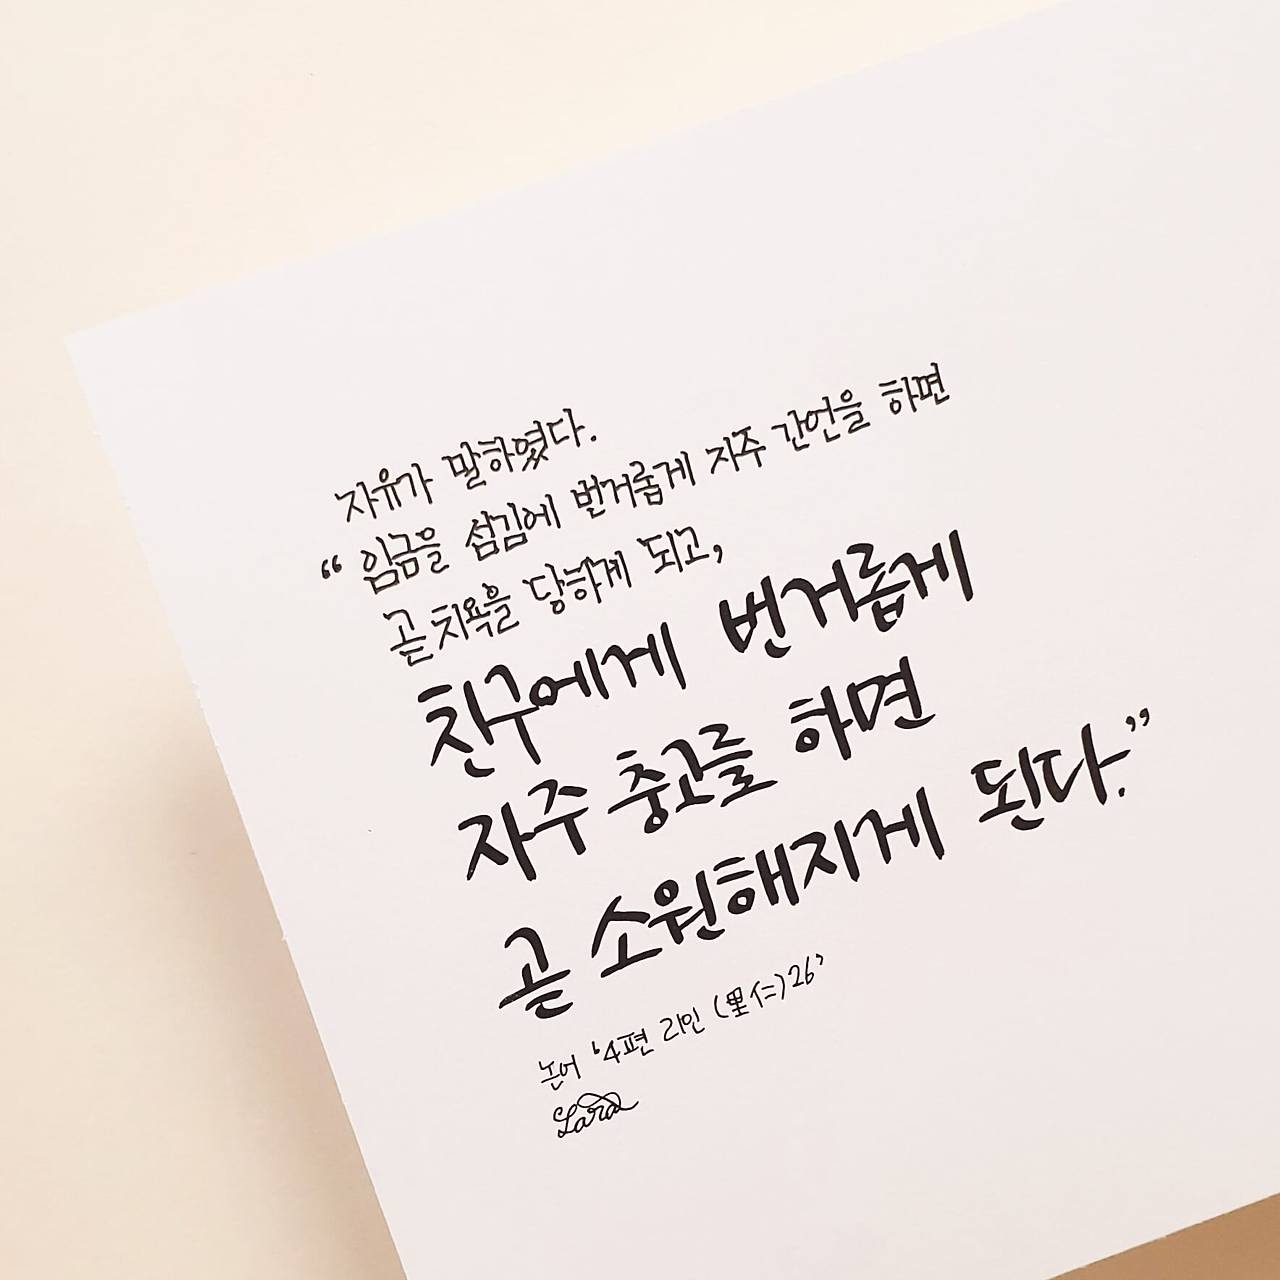 자유가 말하였다.
“임금을 섬김에 번거롭게 자주 간언을 하면
곧 치욕을 당하게 되고,
친구에게 번거롭게
자주 충고를 하면
곧 소원해지게 된다.”
논어 ‘4편 리인 (里仁) 26’
Lara